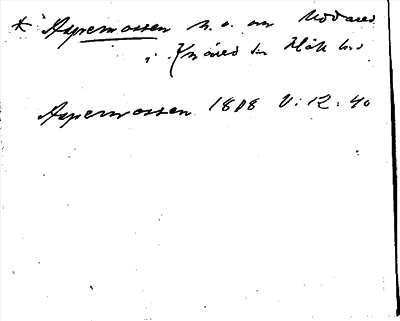 * Aspemossen n. o. om Modared
i Knäred sn Hök hd
Aspemossen 1808 V: 12: 40